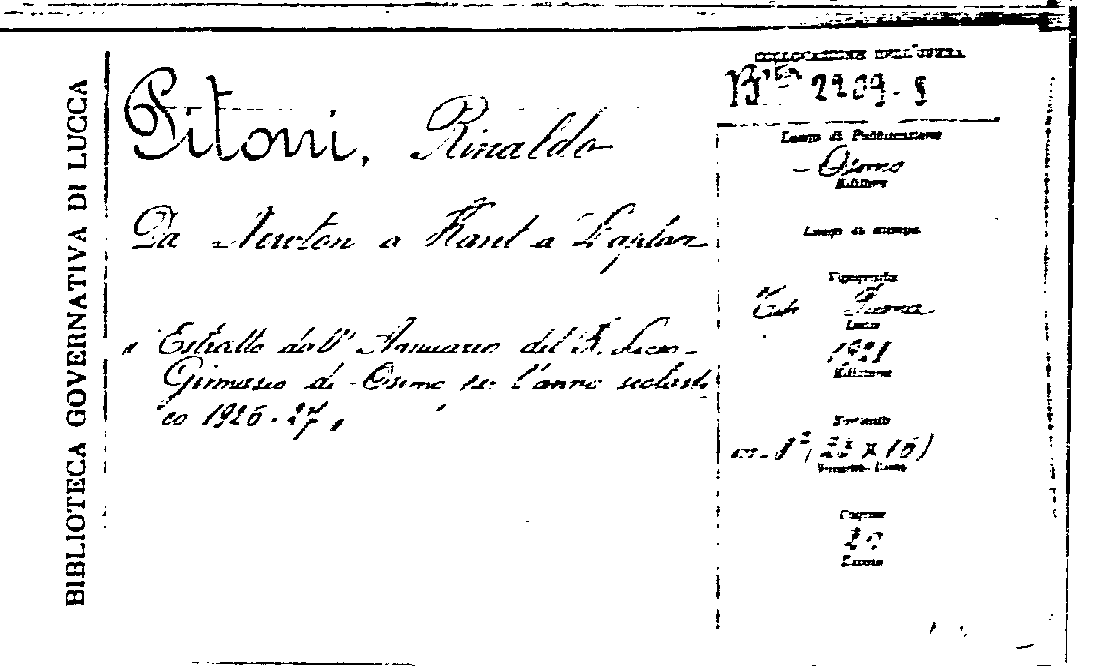 BIBLIOTECA GOVERNATIVA DI LUCCA
Pitoni, Rinaldo
Da Newton a Kant a Laplace
Estratto dall' Annuario del R. Liceo-
Ginnasio di Osimo per l'anno scolasti
co 1926-27
COLLOCAZIONE DELL'OPERA
Bta 2209.
Luogo di Pubblicazione
Osimo
Editore
Luogo di stampa
Tipografia
Tip.
Anno
Edizione
Formato
in-8° (23 x 16)
Pagine